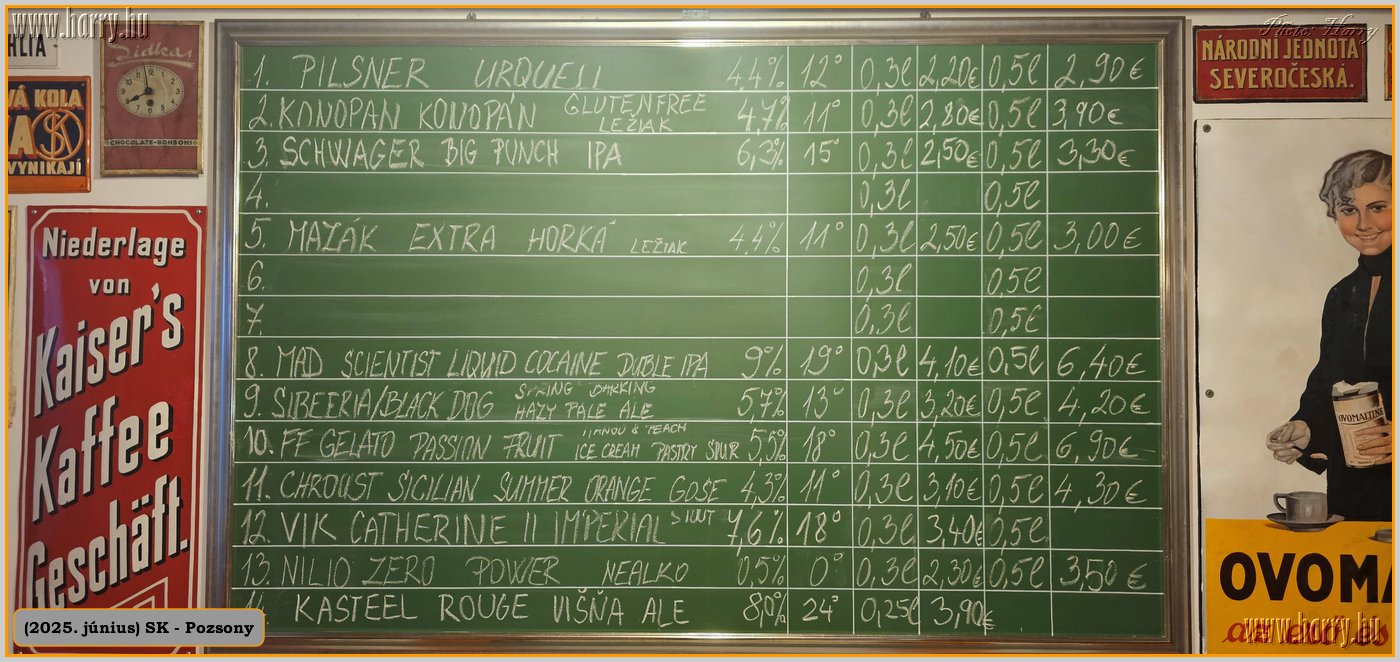 www.harry.hu
Photo: Harry
HLIA
Zidkas
CHOCOLATE-BONBONS
VÁ KOLA
VYNIKAJÍ
Niederlage
von
Kaiser's
Kaffee
Geschäft.
1. PILSNER URQUELL 4,4% 12° 0,3l 2,20€ 0,5l 2,90€
2. KONOPAN KONOPÁN GLUTENFREE LEŽIAK 4,7% 11° 0,3l 2,80€ 0,5l 3,90€
3. SCHWAGER BIG PUNCH IPA 6,3% 15° 0,3l 2,50€ 0,5l 3,30€
4. 0,3l 0,5l
5. MAZÁK EXTRA HORKÁ LEŽIAK 4,4% 11° 0,3l 2,50€ 0,5l 3,00€
6. 0,3l 0,5l
7. 0,3l 0,5l
8. MAD SCIENTIST LIQUID COCAINE DUBLE IPA 9% 19° 0,3l 4,10€ 0,5l 6,40€
9. SIBEERIA/BLACK DOG SPRING BARKING HAZY PALE ALE 5,7% 13° 0,3l 3,20€ 0,5l 4,20€
10. FF GELATO PASSION FRUIT & PEACH ICE CREAM PASTRY SOUR 5,5% 18° 0,3l 4,50€ 0,5l 6,90€
11. CHROUST SICILIAN SUMMER ORANGE GOSE 4,3% 11° 0,3l 3,10€ 0,5l 4,30€
12. VIK CATHERINE II IMPERIAL STOUT 7,6% 18° 0,3l 3,40€ 0,5l
13. NILIO ZERO POWER NEALKO 0,5% 0° 0,3l 2,30€ 0,5l 3,50€
KASTEEL ROUGE VIŠŇA ALE 8,0% 24° 0,25l 3,90€
NÁRODNÍ JEDNOTA
SEVEROČESKÁ.
OVOMALTINE
OVOMA
az erő és
www.harry.hu
(2025. június) SK - Pozsony